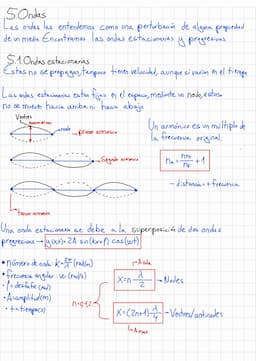 5.Ondas
Las ondas las entendemos como una perturbación de alguna propiedad
de un medio. Encontramos las ondas estacionarias y progresivas
5.1.Ondas estacionarias
Estas no se propagan, tampoco tienen velocidad, aunque si varían en el tiempo
Las ondas estacionarias estan fijas en el espacio, mediante un nodo, estos
no se mueven hacia arriba ni hacia abajo
Vientres
nodo
primer armonico
Segundo armonico
Tercer armonico
Un armónico es un múltiplo de
la frecuencia original
+ 1
- distancia → + frecuencia
Una onda estacionaria se debe a la superposición de dos ondas
progresivas → y(x,t) = 2A sin(kx+f) cos(wt)
• número de onda: K= (rad/m)
• frecuencia angular: w (rad/s)
• f = desfase (rad)
• A = amplitud (m)
• t = tiempo (s)
n=0,1,2
X=n·λ/2 → Nodos
X=(2n+1)·λ/4 → Vientres/antinodos